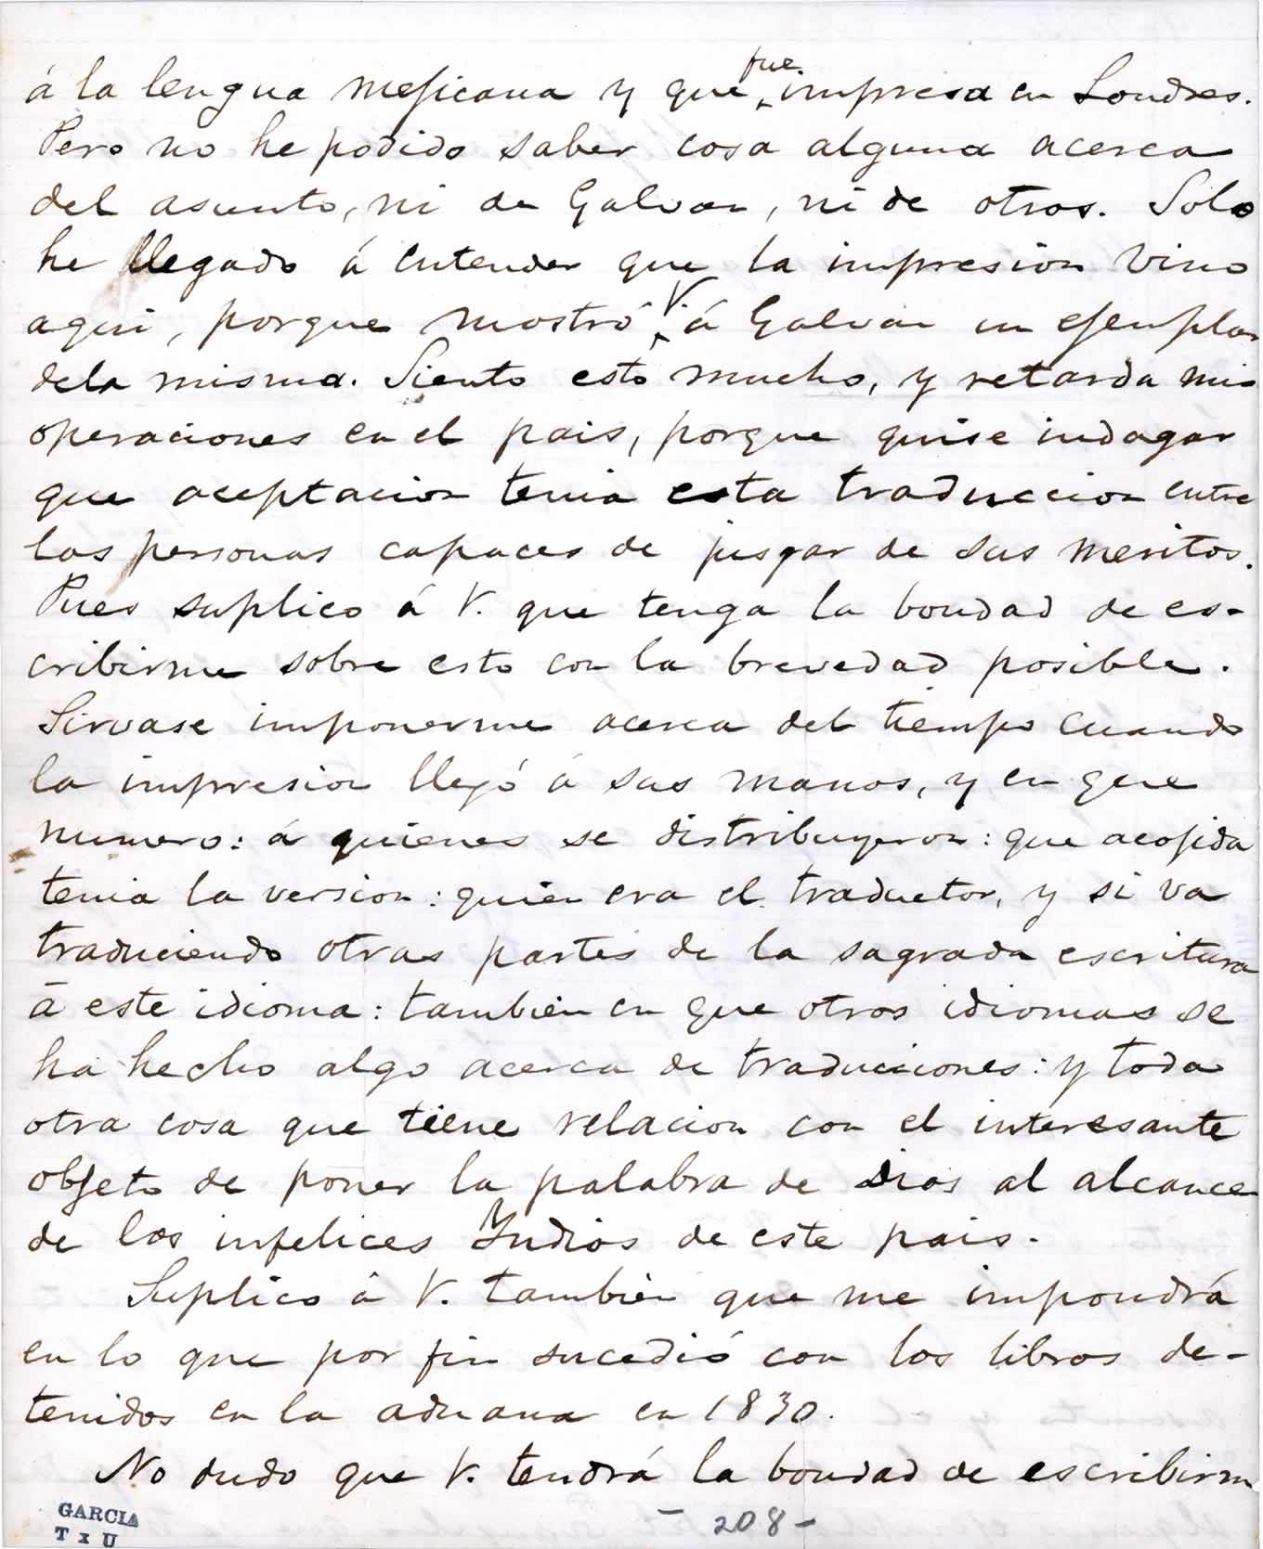 á la lengua mejicana y que fue impresa en Londres.
Pero no he podido saber cosa alguna acerca
del asunto, ni de Galvan, ni de otros. Solo
he llegado á entender que la impresion vino
aqui, porque mostró V á Galvan un ejemplar
dela misma. Siento esto mucho, y retarda mis
operaciones en el pais, porque quise indagar
que aceptacion tenia esta traduccion entre
las personas capaces de jusgar de sus meritos.
Pues suplico á V. que tenga la bondad de es-
cribirme sobre esto con la brevedad posible.
Sirvase imponerme acerca del tiempo cuando
la impresion llegó á sus manos, y en que
numero: á quienes se distribuyeron: que acojida
tenia la version: quien era el traductor, y si va
traduciendo otras partes de la sagrada escritura
á este idioma: tambien en que otros idiomas se
ha hecho algo acerca de traducciones: y toda
otra cosa que tiene relacion con el interesante
objeto de poner la palabra de Dios al alcance
de los infelices Yndios de este pais.
Suplico á V. tambien que me impondrá
en lo que por fin sucedió con los libros de-
tenidos en la aduana en 1830.
No dudo que V. tendrá la bondad de escribirme
GARCIA
T x U
- 208 -